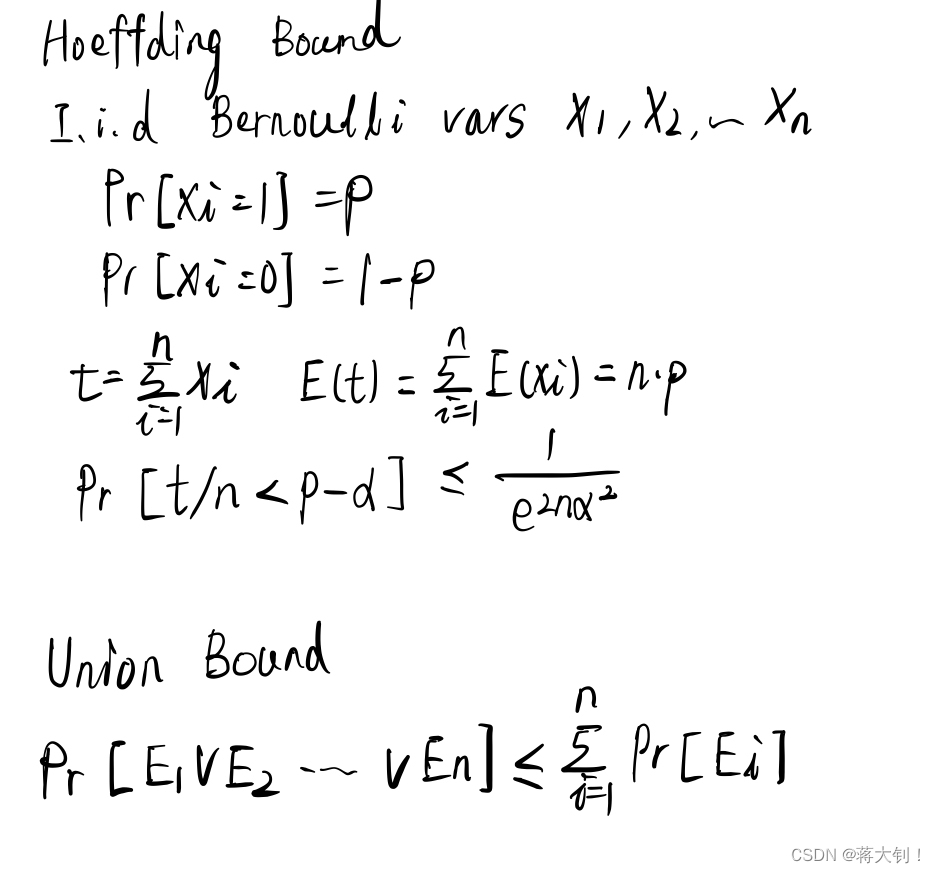 Hoeffding Bound
I.i.d Bernoulli vars X₁, X₂, ~ Xₙ
Pr[Xi=1] = p
Pr[Xi=0] = 1-p
t = ∑ᵢ₌₁ⁿ Xi E(t) = ∑ᵢ₌₁ⁿ E(Xi) = n·p
Pr [t/n < p-α] ≤ 1/e^(2nα²)
Union Bound
Pr [E₁VE₂ ... VEn] ≤ ∑ᵢ₌₁ⁿ Pr[Ei]
CSDN @蒋大钊！